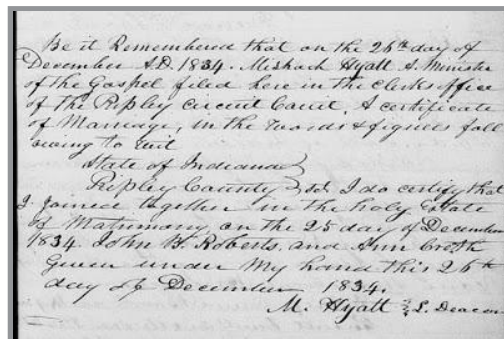 Be it Remembered that on the 26th day of
December A.D. 1834. Mishach Hyatt A. Minister
of the Gospel filed here in the Clerks office
of the Ripley Circuit Court, A certificate
of Marriage, in the words & figures foll
owing to Wit
State of Indiana
Ripley County } Sct I do certify that
I joined together in the holy State
of Matrimony on the 25 day of December
1834. John B. Roberts, and Ann
Given under My hand this 26th
day of December 1834.
M. Hyatt L. Deacon